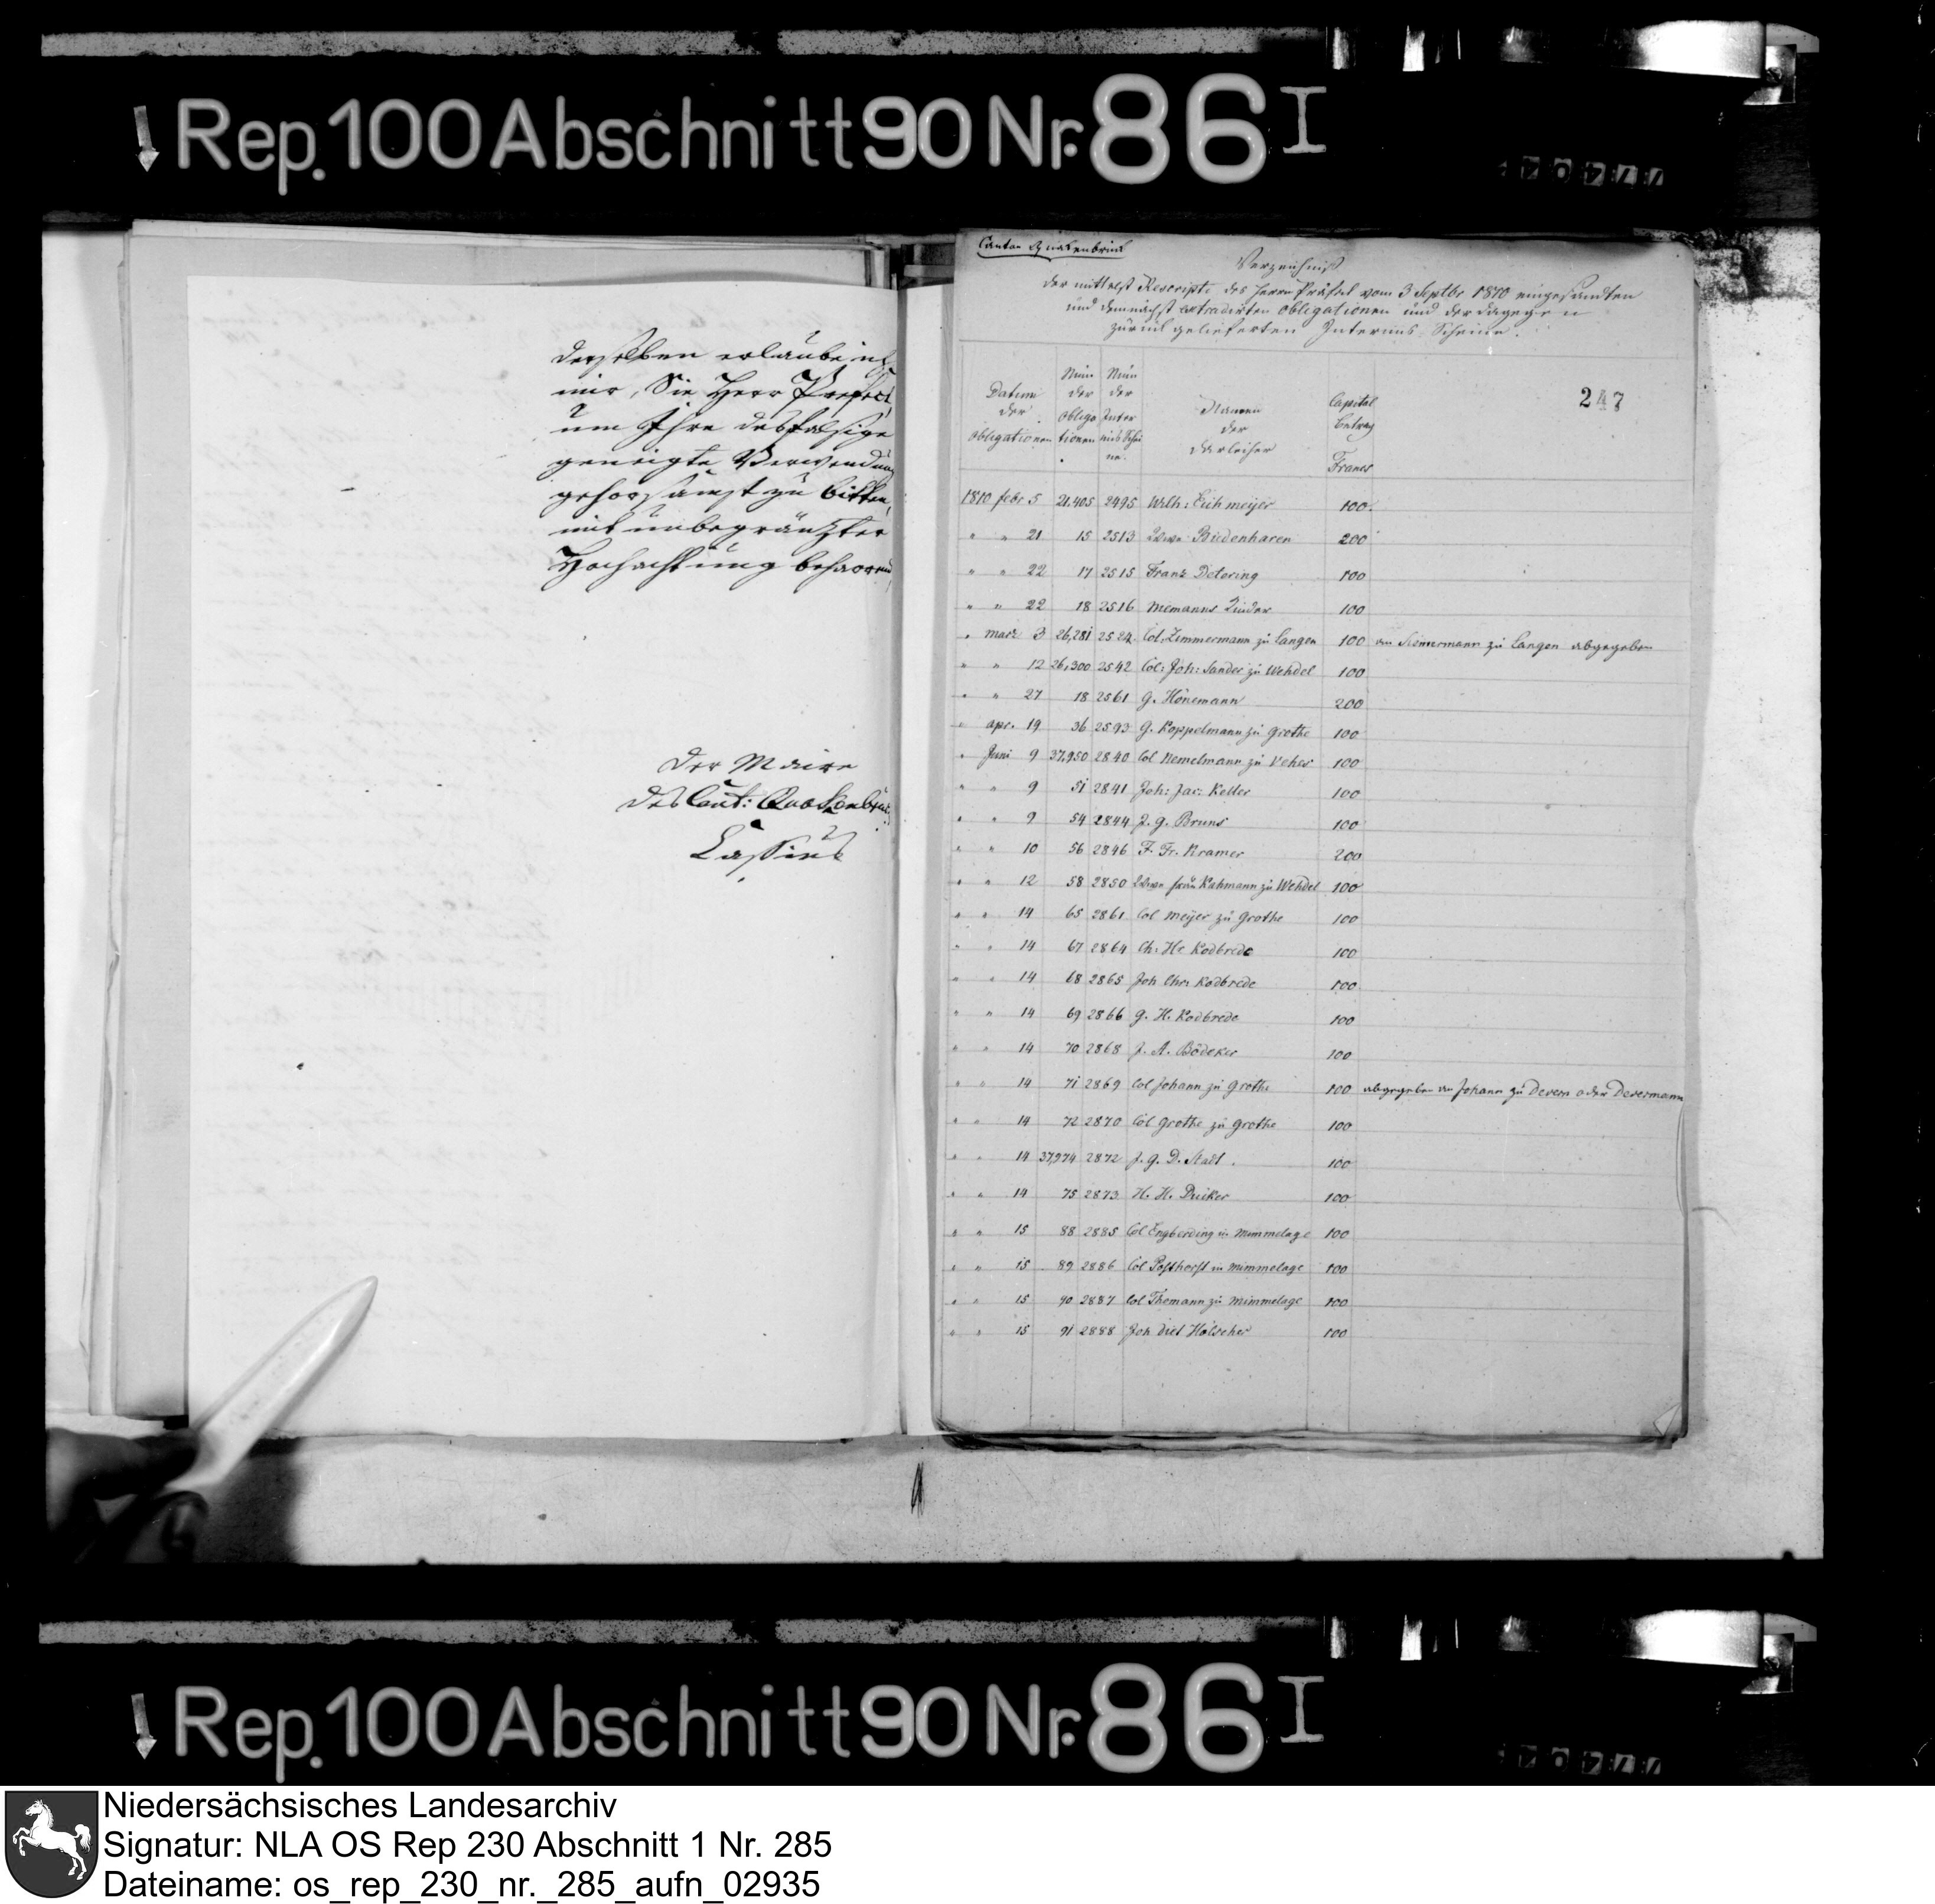 Rep. 100 Abschnitt 90 Nr. 86 I
derselben erlaube ich
mir, Sie Herr Prefect,
um Ihre desfalsige
geneigte Verwendung
gehorsamst zu bitten,
mit unbegränzter
Hochachtung beharrend
Der Maire
des Cant: Quakenbrück
Cassius
Canton Quakenbrück
Verzeichniß
der mittelst Rescripts des Herrn Präfect vom 3 Septbr 1810 eingesandten
und demnächst extradirten Obligationen und der dagegen
zurück gelieferten Interims-Scheine.
247
Datum der Obligationen
Num der Obligationen
Num der Interims Scheine.
Namen der Darleiher
Capital betrag Francs
1810 febr 5 21,405 2495 Wilh: Eichmeijer 100.
" " 21 15 2513 Wwe Biedenharen 200
" " 22 17 2515 Franz Detering 100
" " 22 18 2516 Niemanns Kinder 100
" marz 3 26,281 2524 Col. Zimmermann zu Langen 100 an Zimmermann zu Langen abgegeben
" " 12 26,300 2542 Col: Joh: Sander zu Wehdel 100
" " 27 18 2561 G. Hönemann 200
" apr. 19 36 2593 G. Koppelmann zu Grothe 100
" Juni 9 37,950 2840 Col Nemelmann zu Vehs 100
" " 9 51 2841 Joh: Jac: Keller 100
" " 9 54 2844 J. G. Bruns 100
" " 10 56 2846 F. Fr. Kramer 200
" " 12 58 2850 Wwe frau Kahmann zu Wehdel 100
" " 14 65 2861 Col Meijer zu Grothe 100
" " 14 67 2864 Ch: Hr Kodbrede 100
" " 14 68 2865 Joh Chr: Kodbrede 100
" " 14 69 2866 G. H. Kodbrede 100
" " 14 70 2868 J. A. Bödeker 100
" " 14 71 2869 Col Johann zu Grothe 100 abgegeben an Johann zu Devern oder Devermann
" " 14 72 2870 Col Grothe zu Grothe 100
" " 14 37,974 2872 J. G. D. Stadt. 100
" " 14 75 2873 H. H. Düker 100
" " 15 88 2885 Col Engberding in Mimmelage 100
" " 15 89 2886 Col Posthorst in Mimmelage 100
" " 15 90 2887 Col Thomann zu Mimmelage 100
" " 15 91 2888 Joh Diet Hölscher 100
Rep. 100 Abschnitt 90 Nr. 86 I
Niedersächsisches Landesarchiv
Signatur: NLA OS Rep 230 Abschnitt 1 Nr. 285
Dateiname: os_rep_230_nr._285_aufn_02935